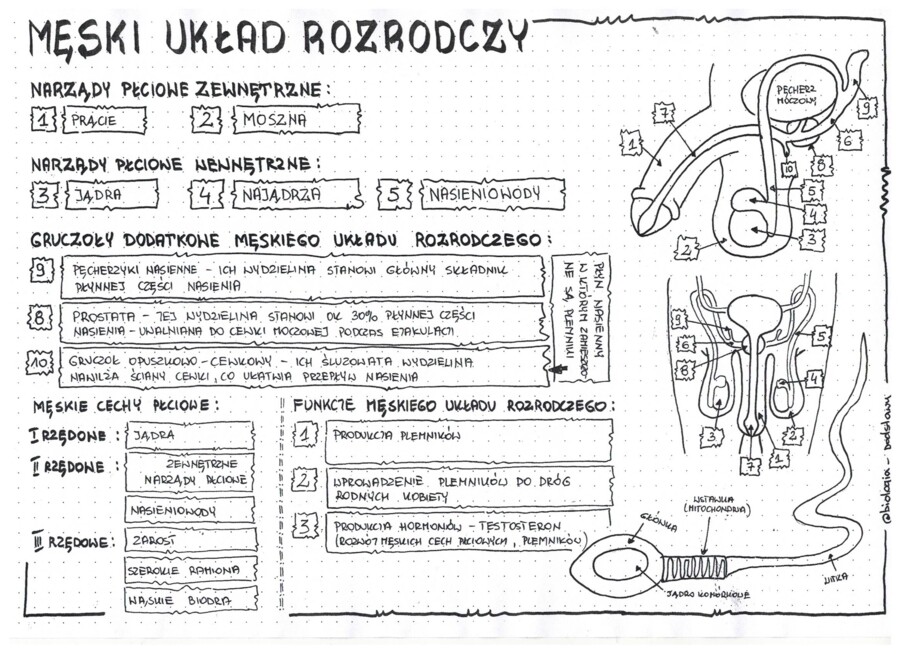 MĘSKI UKŁAD ROZRODCZY
NARZĄDY PŁCIOWE ZEWNĘTRZNE:
1 PRĄCIE 2 MOSZNA
NARZĄDY PŁCIOWE WEWNĘTRZNE:
3 JĄDRA 4 NAJĄDRZA 5 NASIENIOWODY
GRUCZOŁY DODATKOWE MĘSKIEGO UKŁADU ROZRODCZEGO:
9 PĘCHERZYKI NASIENNE - ICH WYDZIELINA STANOWI GŁÓWNY SKŁADNIK
PŁYNNEJ CZĘŚCI NASIENIA
8 PROSTATA - JEJ WYDZIELINA STANOWI OK 30% PŁYNNEJ CZĘŚCI
NASIENIA - UWALNIANA DO CEWKI MOCZOWEJ PODCZAS EJAKULACJI
10 GRUCZOŁ OPUSZKOWO-CEWKOWY - ICH ŚLUZOWATA WYDZIELINA
NAWILŻA ŚCIANY CEWKI, CO UŁATWIA PRZEPŁYW NASIENIA
PŁYN NASIENNY
W KTÓRYM ZAWIESZO
NE SĄ PLEMNIKI
MĘSKIE CECHY PŁCIOWE:
I RZĘDOWE: JĄDRA
II RZĘDOWE: ZEWNĘTRZNE
NARZĄDY PŁCIOWE
NASIENIOWODY
III RZĘDOWE: ZAROST
SZEROKIE RAMIONA
WĄSKIE BIODRA
FUNKCJE MĘSKIEGO UKŁADU ROZRODCZEGO:
1 PRODUKCJA PLEMNIKÓW
2 WPROWADZENIE PLEMNIKÓW DO DRÓG
RODNYCH KOBIETY
3 PRODUKCJA HORMONÓW - TESTOSTERON
(ROZWÓJ MĘSKICH CECH PŁCIOWYCH, PLEMNIKÓW)
PĘCHERZ
MOCZOWY
1
7
9
6
8
10
5
4
3
2
9
6
8
5
4
3
2
7
1
WSTAWKA
(MITOCHONDRIA)
GŁÓWKA
JĄDRO KOMÓRKOWE
WITKA
@biologia - podstawy